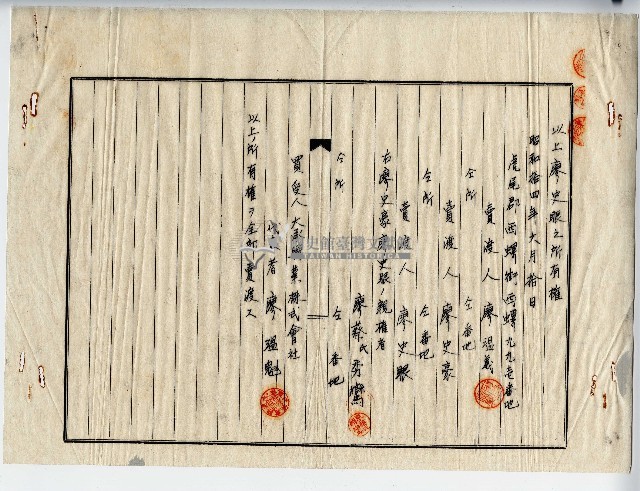 以上廖史眼之所有権
昭和拾四年六月拾日
虎尾郡西螺街西螺九九壱番地
賣渡人 廖温義
仝所 仝番地
賣渡人 廖史豪
仝所 仝番地
賣渡人 廖史眼
右廖史豪廖史眼ノ親権者
廖蔡氏秀鸞
仝所 仝番地
買受人 大 業株式會社
代 者 廖温魁
以上ノ所有権ヲ全部賣渡ス
TAIWAN HISTORICA